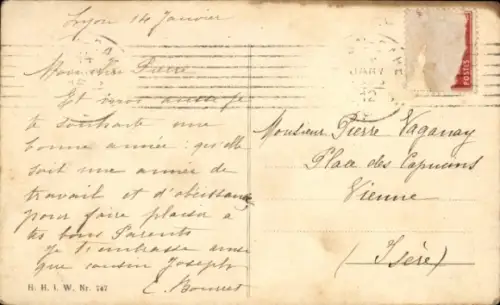 Lyon 14 Janvier
Mon cher Pierre
Et vous aussi je
te souhaite une
bonne année; qu'elle
soit une année de
travail et d'obéissance
pour faire plaisir à
tes bons Parents
Je t'embrasse ainsi
que cousin Joseph
E.
H. H. i. W. Nr. 747
POSTES
JANV
Monsieur Pierre Vaganay
Place des Capucins
Vienne
(Isère)